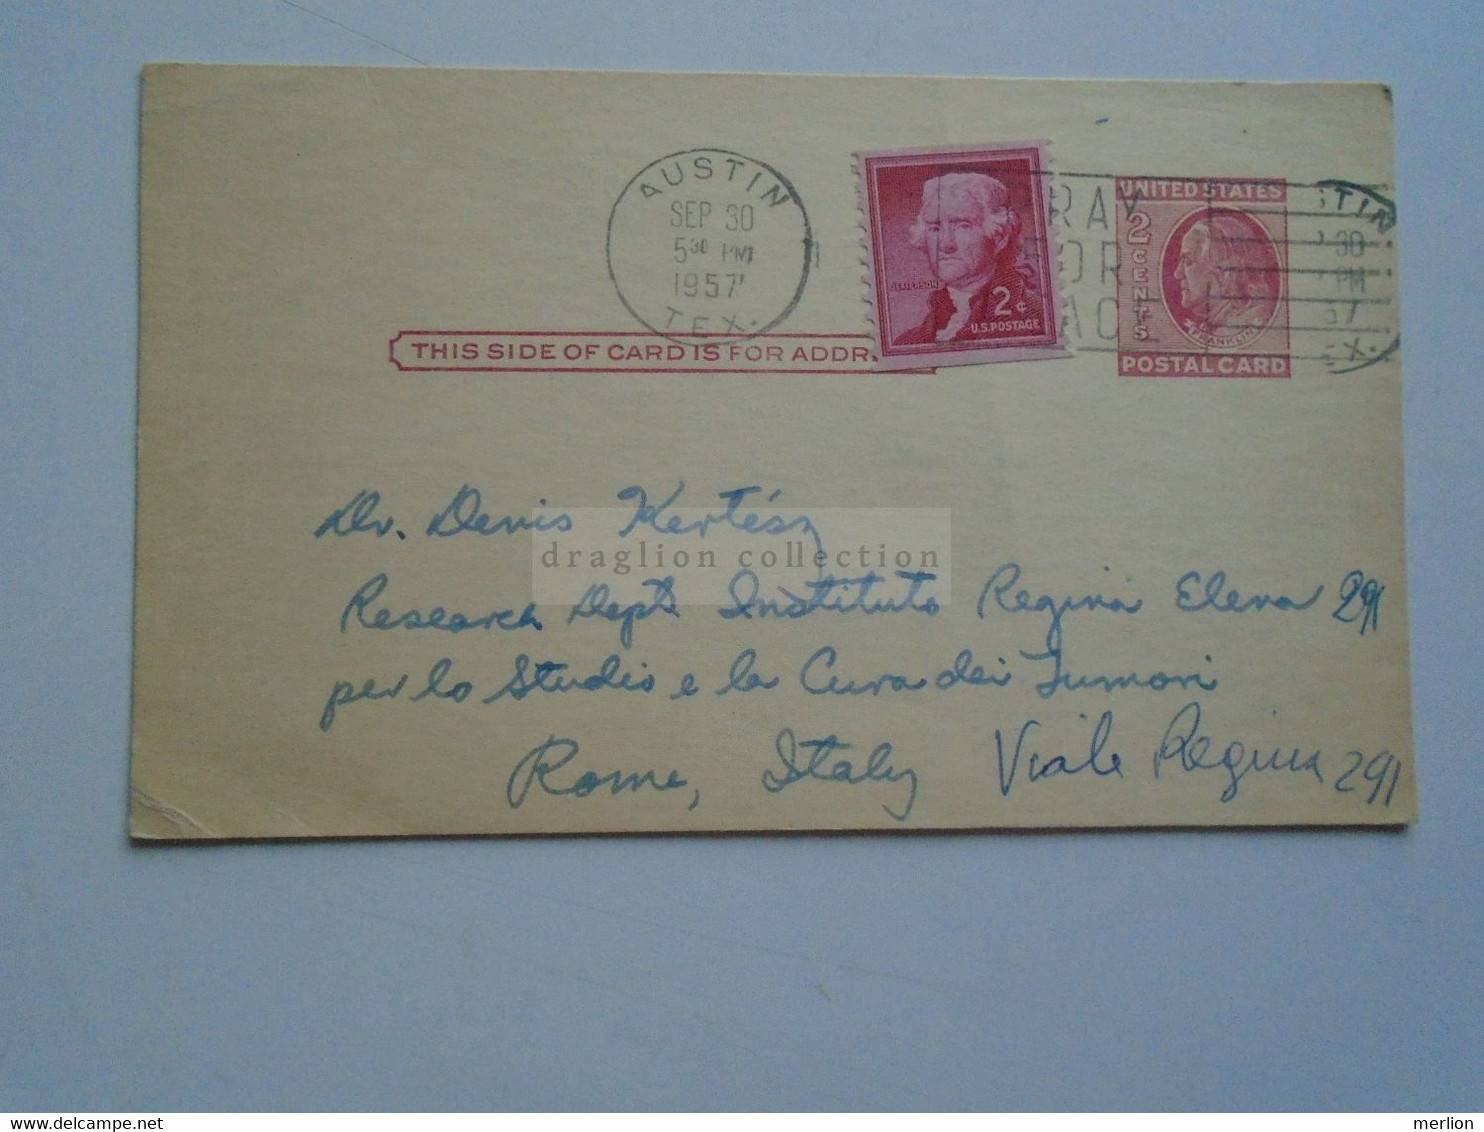 AUSTIN
SEP 30
5 30 PM
1957
TEX.
JEFFERSON
2¢
U.S. POSTAGE
FOR
UNITED STATES
2 CENTS
FRANKLIN
POSTAL CARD
THIS SIDE OF CARD IS FOR ADDR
Dr. Denis Kertész
draglion collection
Research Dept Instituto Regina Elena 291
per lo Studio e la Cura dei Tumori
Rome, Italy Viale Regina 291
delcampe.net
merlion